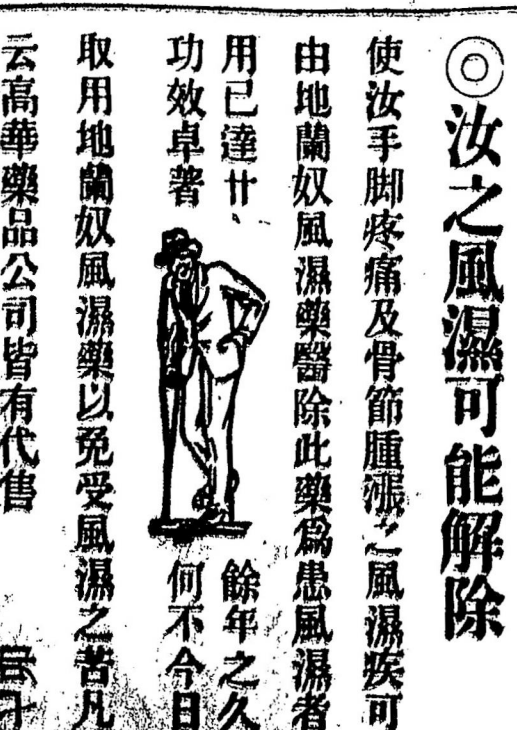 ◎汝之風濕可能解除
使汝手脚疼痛及骨節腫漲之風濕疾可
由地蘭奴風濕藥醫除此藥爲患風濕者
用已達廿餘年之久
功效卓著何不今日
取用地蘭奴風濕藥以免受風濕之苦凡
云高華藥品公司皆有代售